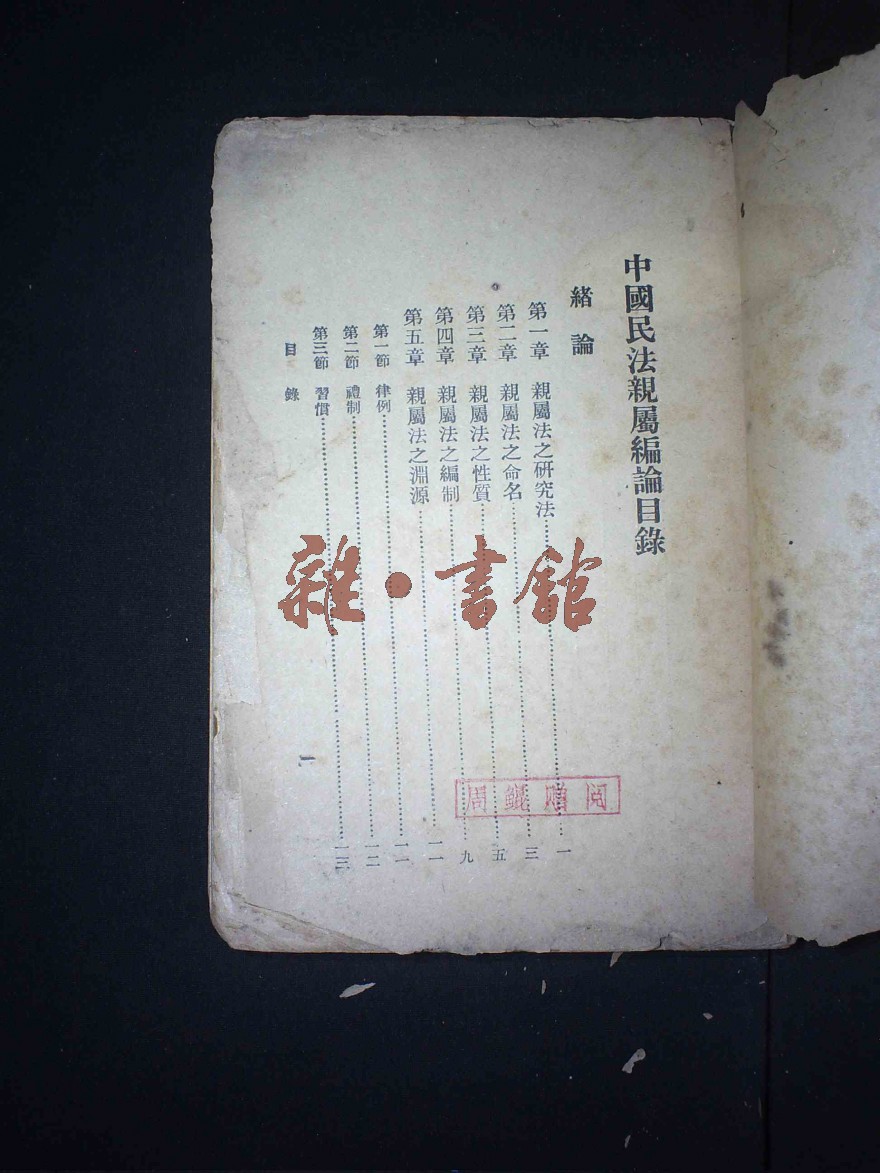 中國民法親屬編論目錄
緒論
第一章 親屬法之研究法……一
第二章 親屬法之命名……三
第三章 親屬法之性質……五
第四章 親屬法之編制……九
第五章 親屬法之淵源……一一
第一節 律例……一一
第二節 禮制……一二
第三節 習慣……一三
目錄
一
周鲲赠阅
雜·書館